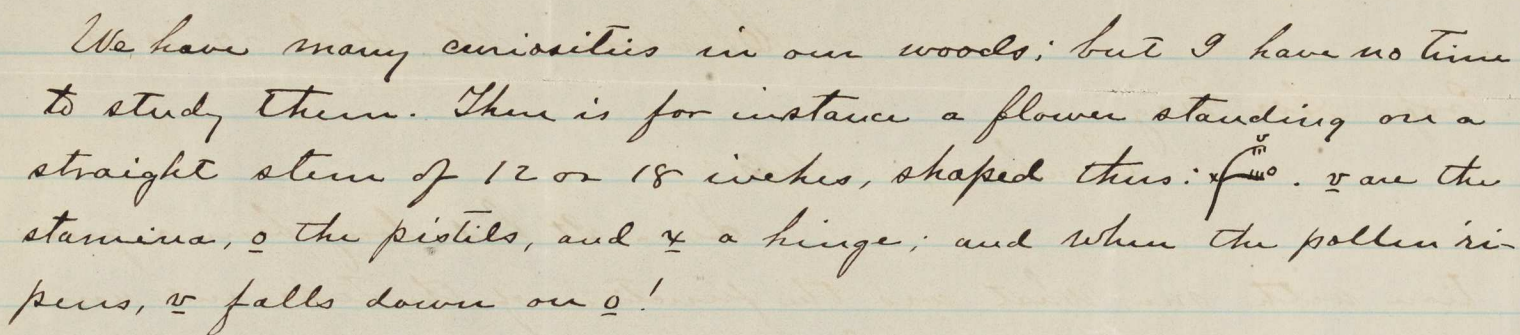 We have many curiosities in our woods; but I have no time
to study them. There is for instance a flower standing on a
straight stem of 12 or 18 inches, shaped thus: . v are the
stamina, o the pistils, and x a hinge; and when the pollen ri-
pens, v falls down on o!